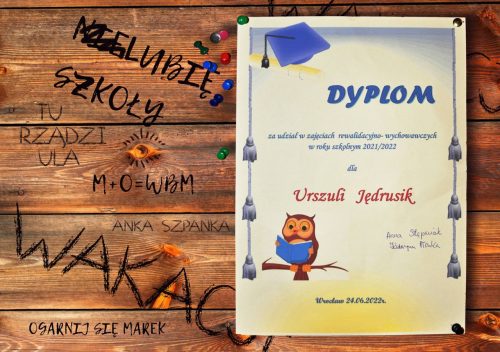 NIE LUBIĘ
SZKOŁY
TU
RZĄDZI
ULA
M+O=WBM
ANKA SZPANKA
WAKAC
OGARNIJ SIĘ MAREK
DYPLOM
za udział w zajęciach rewalidacyjno- wychowawczych
w roku szkolnym 2021/2022
dla
Urszuli Jędrusik
Anna
Wrocław 24.06.2022r.